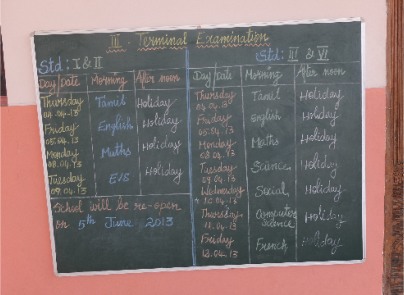 III . Terminal Examination
Std : I & II
Day/Date Morning After noon
Thursday 04.04.13 Tamil Holiday
Friday 05.04.13 English Holiday
Monday 08.04.13 Maths Holiday
Tuesday 09.04.13 EVS Holiday
School will be re-open
on 5th June 2013
Std : III & VI
Day/date Morning After noon
Thursday 04.04.13 Tamil Holiday
Friday 05.04.13 English Holiday
Monday 08.04.13 Maths Holiday
Tuesday 09.04.13 Science Holiday
Wednesday 10.04.13 Social Holiday
Thursday 11.04.13 Computer Science Holiday
Friday 12.04.13 French Holiday